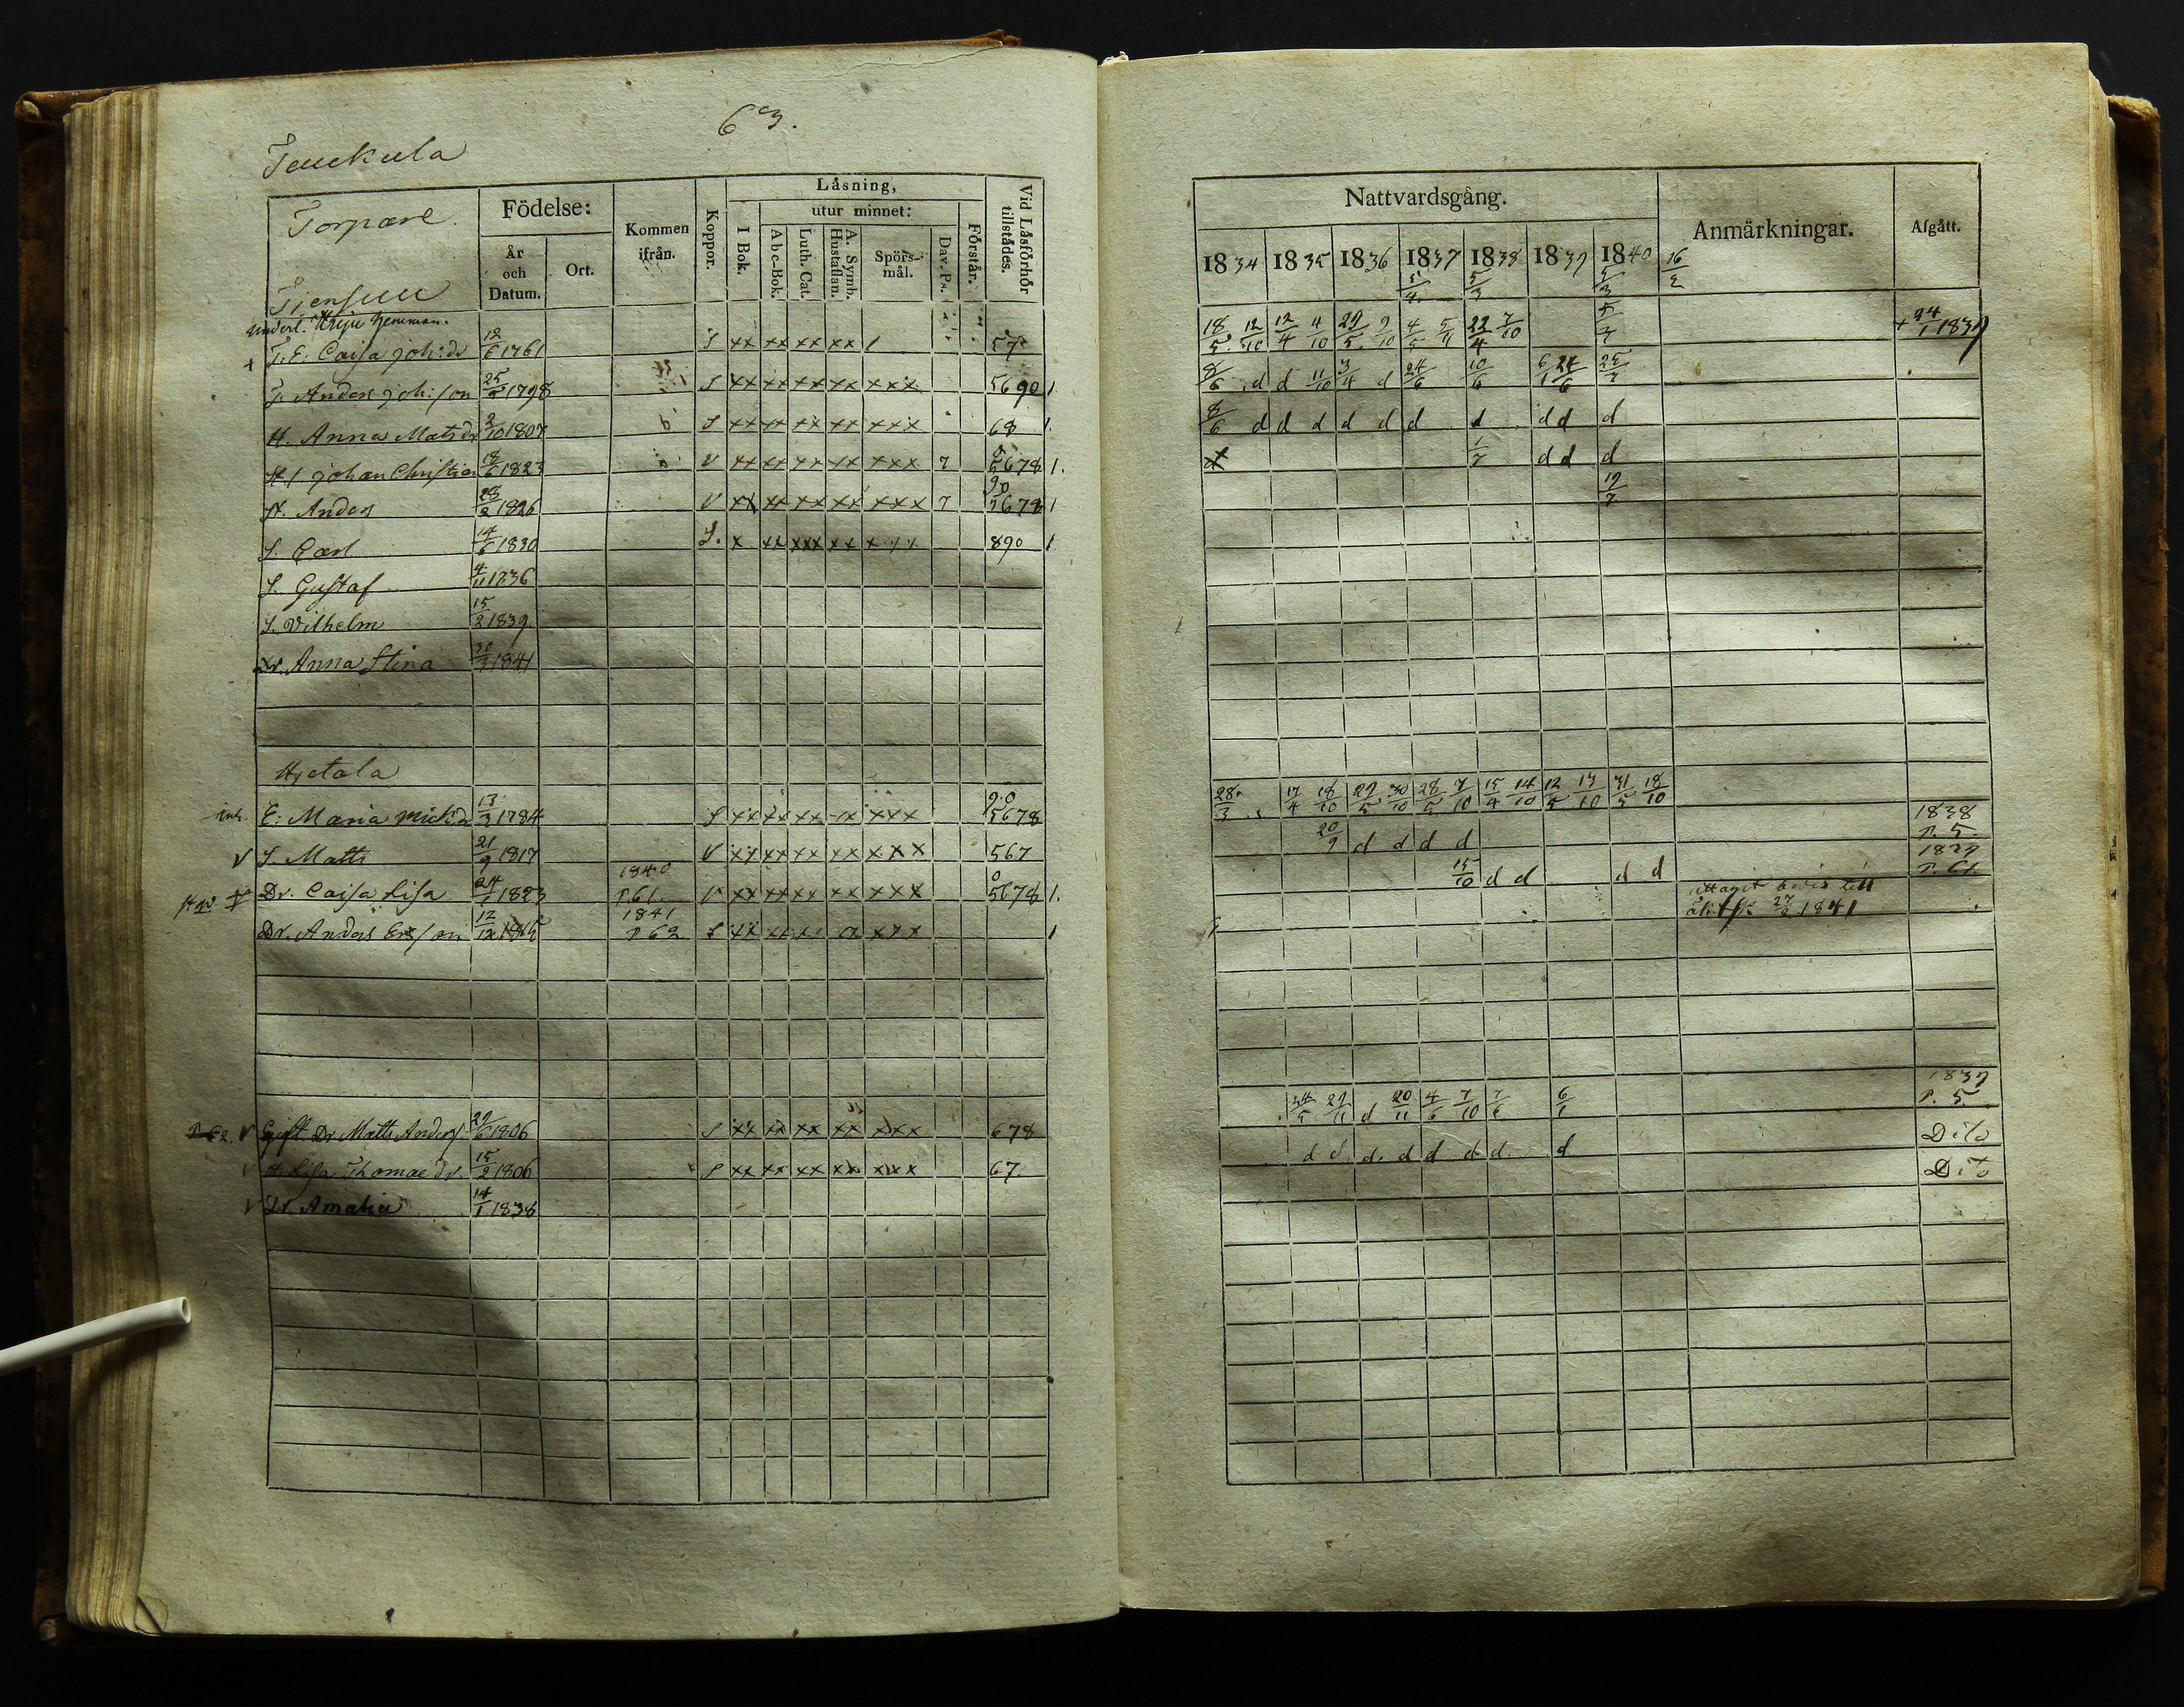 63.
Teuckula
Torpare
Födelse:
År och Datum.
Ort.
Kommen ifrån.
Koppor.
Låsning,
I Bok.
utur minnet:
Abc-Bok.
Luth. Cat.
A. Symb. Hustaflan.
Spörs-mål.
Dav. Ps.
Förstår.
Vid Låsförhör tillstådes.
Tjensuu
underl. Heiju hemman.
+ T. E. Caisa Joh:dr 12/6 1761 S xx xx xx xx 1 57
T. Anders Joh:son 25/5 1798 S xx xx xx xx xxx 5690 1
H. Anna Matsdr 2/10 1807 S xx xx xx xx xxx 68 1.
Johan Christian 18/6 1823 V xx xx xx xx xxx 7 5678 1.
Anders 28/2 1826 V xx xx xx xx xxx 7 90 5678 1
S. Carl 14/6 1830 S. x xx xxx xx x 890 1
S. Gustaf 4/11 1836
S. Vilhelm 15/2 1839
Dr. Anna Stina 30/ 1841
Hietala
inh. E. Maria Mickdr 13/3 1784 S xx xx xx xx xxx 90 5678
V S. Matts 21/9 1817 V xx xx xx xx xxx 567
Dr. Caisa Lisa 24/1 1823 1840 p 61. V xx xx xx xx xxx 0 5678 1.
Dr. Anders Er/son 12/12 1815 1841 p 62 S xx xx xx xxx 1
p 62. V Gift. Dr Matts Anders/ 29/6 1806 S xx xx xx xx xxx 678
V H. Lisa Thomaedr. 15/2 1806 S xx xx xx xx xxx 67.
V Dr. Amalia 14/1 1838
Nattvardsgång.
Anmärkningar.
Afgått.
1834 1835 1836 1837 1838 1839 1840 16/2
5/4 5/3 5/3
18/5 12/10 12/4 4/10 29/5 9/10 4/5 5/11 22/4 7/10 + 24/1 1839
8/6 d d 11/10 3/4 d 24/6 10/6 6/1 24/6 25/
8/6 d d d d d d d d d d
d d d
19/7
28/3 17/4 18/10 29/5 30/10 28/5 7/10 15/4 14/10 12/5 13/10 31/5 18/10
20/9 d d d d 1838 p. 5.
15/10 d d d d 1839 p. 61.
uttagit bevis till 1841
24/5 29/11 d 20/11 4/6 7/10 7/6 6/1 1839 p. 5
d d d. d d d d. d Dito
Dito